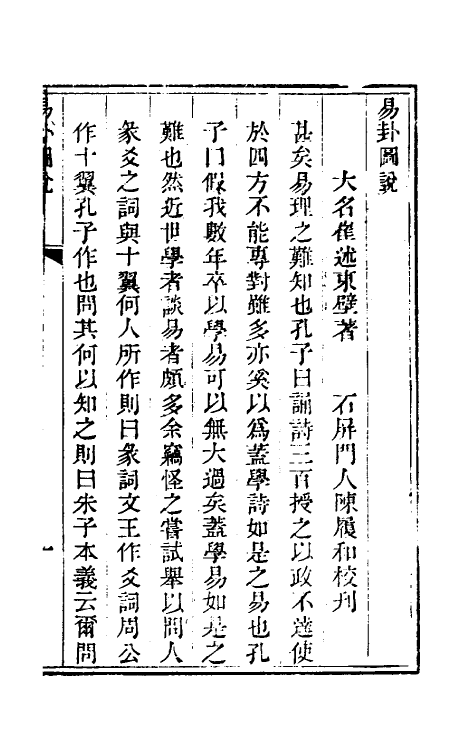 易卦圖說
大名崔述東壁著　石屏門人陳履和校刋
甚矣易理之難知也孔子曰誦詩三百授之以政不達使
於四方不能專對雖多亦奚以爲蓋學詩如是之易也孔
子曰假我數年卒以學易可以無大過矣蓋學易如是之
難也然近世學者談易者頗多余竊怪之嘗試舉以問人
彖爻之詞與十翼何人所作則曰彖詞文王作爻詞周公
作十翼孔子作也問其何以知之則曰朱子本義云爾問
易卦圖說
一